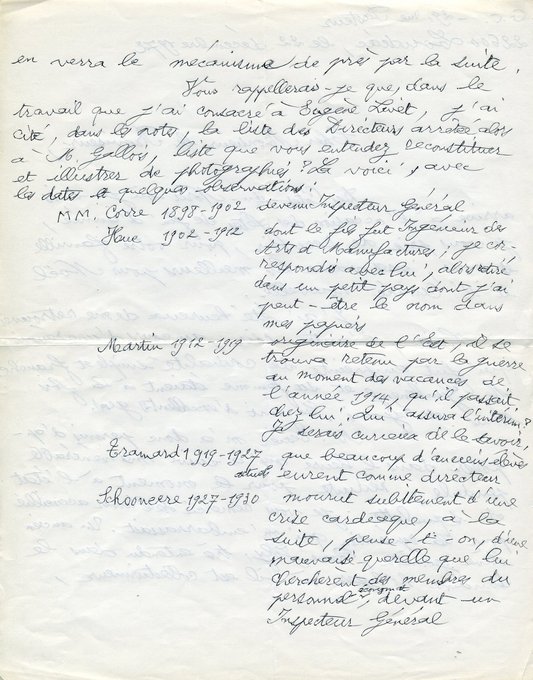 en verra le mécanisme de près par la suite.
Vous rappellerais-je que, dans le
travail que j'ai consacré à Eugène Livet, j'ai
cité, dans les notes, la liste des Directeurs arrêtée alors
à M. Gallois, liste que vous entendez reconstituer
et illustrer de photographies ? La voici, avec
les dates et quelques observations :
MM. Corre 1898-1902 devenu Inspecteur Général
Huc 1902-1912 dont le fils fut Ingénieur des
Arts et Manufactures ; je cor-
respondis avec lui, alors retiré
dans un petit pays dont j'ai
peut-être le nom dans
mes papiers
Martin 1912-1919 originaire de l'Est, il se
trouva retenu par la guerre
au moment des vacances de
l'année 1914, qu'il passait
chez lui. Qui assura l'intérim ?
Je serais curieux de le savoir,
Tramard 1919-1927 que beaucoup d'anciens élèves
eurent comme directeur
Schooneere 1927-1930 mourut subitement d'une
crise cardiaque, à la
suite, pense-t-on, d'une
mauvaise querelle que lui
cherchèrent des membres du
personnel, devant un
Inspecteur Général